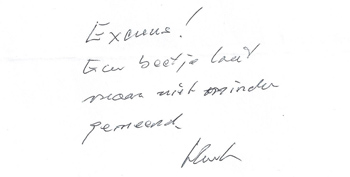 Excuus!
Een beetje laat
maar niet minder
gemeend.